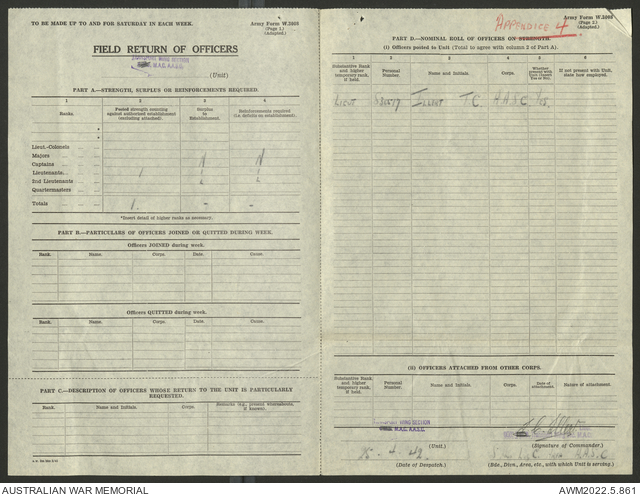 TO BE MADE UP TO AND FOR SATURDAY IN EACH WEEK.
Army Form W.3008
(Page 1.)
(Adapted.)
FIELD RETURN OF OFFICERS
(Unit)
PART A.—STRENGTH, SURPLUS OR REINFORCEMENTS REQUIRED.
1 2 3 4
Ranks. Posted strength counting against authorised establishment (excluding attached). Surplus to Establishment. Reinforcements required (i.e. deficits on establishment).
Lieut.-Colonels
Majors
Captains
Lieutenants 1
2nd Lieutenants
Quartermasters
Totals 1. - -
*Insert detail of higher ranks as necessary.
PART B.—PARTICULARS OF OFFICERS JOINED OR QUITTED DURING WEEK.
Officers JOINED during week.
Rank. Name. Corps. Date. Cause.
Officers QUITTED during week.
Rank. Name. Corps. Date. Cause.
PART C.—DESCRIPTION OF OFFICERS WHOSE RETURN TO THE UNIT IS PARTICULARLY REQUESTED.
Rank. Name and Initials. Corps. Remarks (e.g., present whereabouts, if known).
APPENDICE 4
Army Form W.3008
(Page 2.)
(Adapted.)
PART D.—NOMINAL ROLL OF OFFICERS ON STRENGTH.
(i) Officers posted to Unit (Total to agree with column 2 of Part A).
1 2 3 4 5 6
Substantive Rank and higher temporary rank, if held. Personal Number. Name and Initials. Corps. Whether present with Unit (Insert Yes or No). If not present with Unit, state how employed.
LIEUT
(ii) OFFICERS ATTACHED FROM OTHER CORPS.
Substantive Rank and higher temporary rank, if held. Personal Number. Name and Initials. Corps. Date of attachment. Nature of attachment.
WING SECTION
(Unit.)
(Signature of Commander.)
25 . 4 . 42
(Date of Despatch.)
(Bde., Divn., Area, etc., with which Unit is serving.)
AUSTRALIAN WAR MEMORIAL
AWM2022.5.861